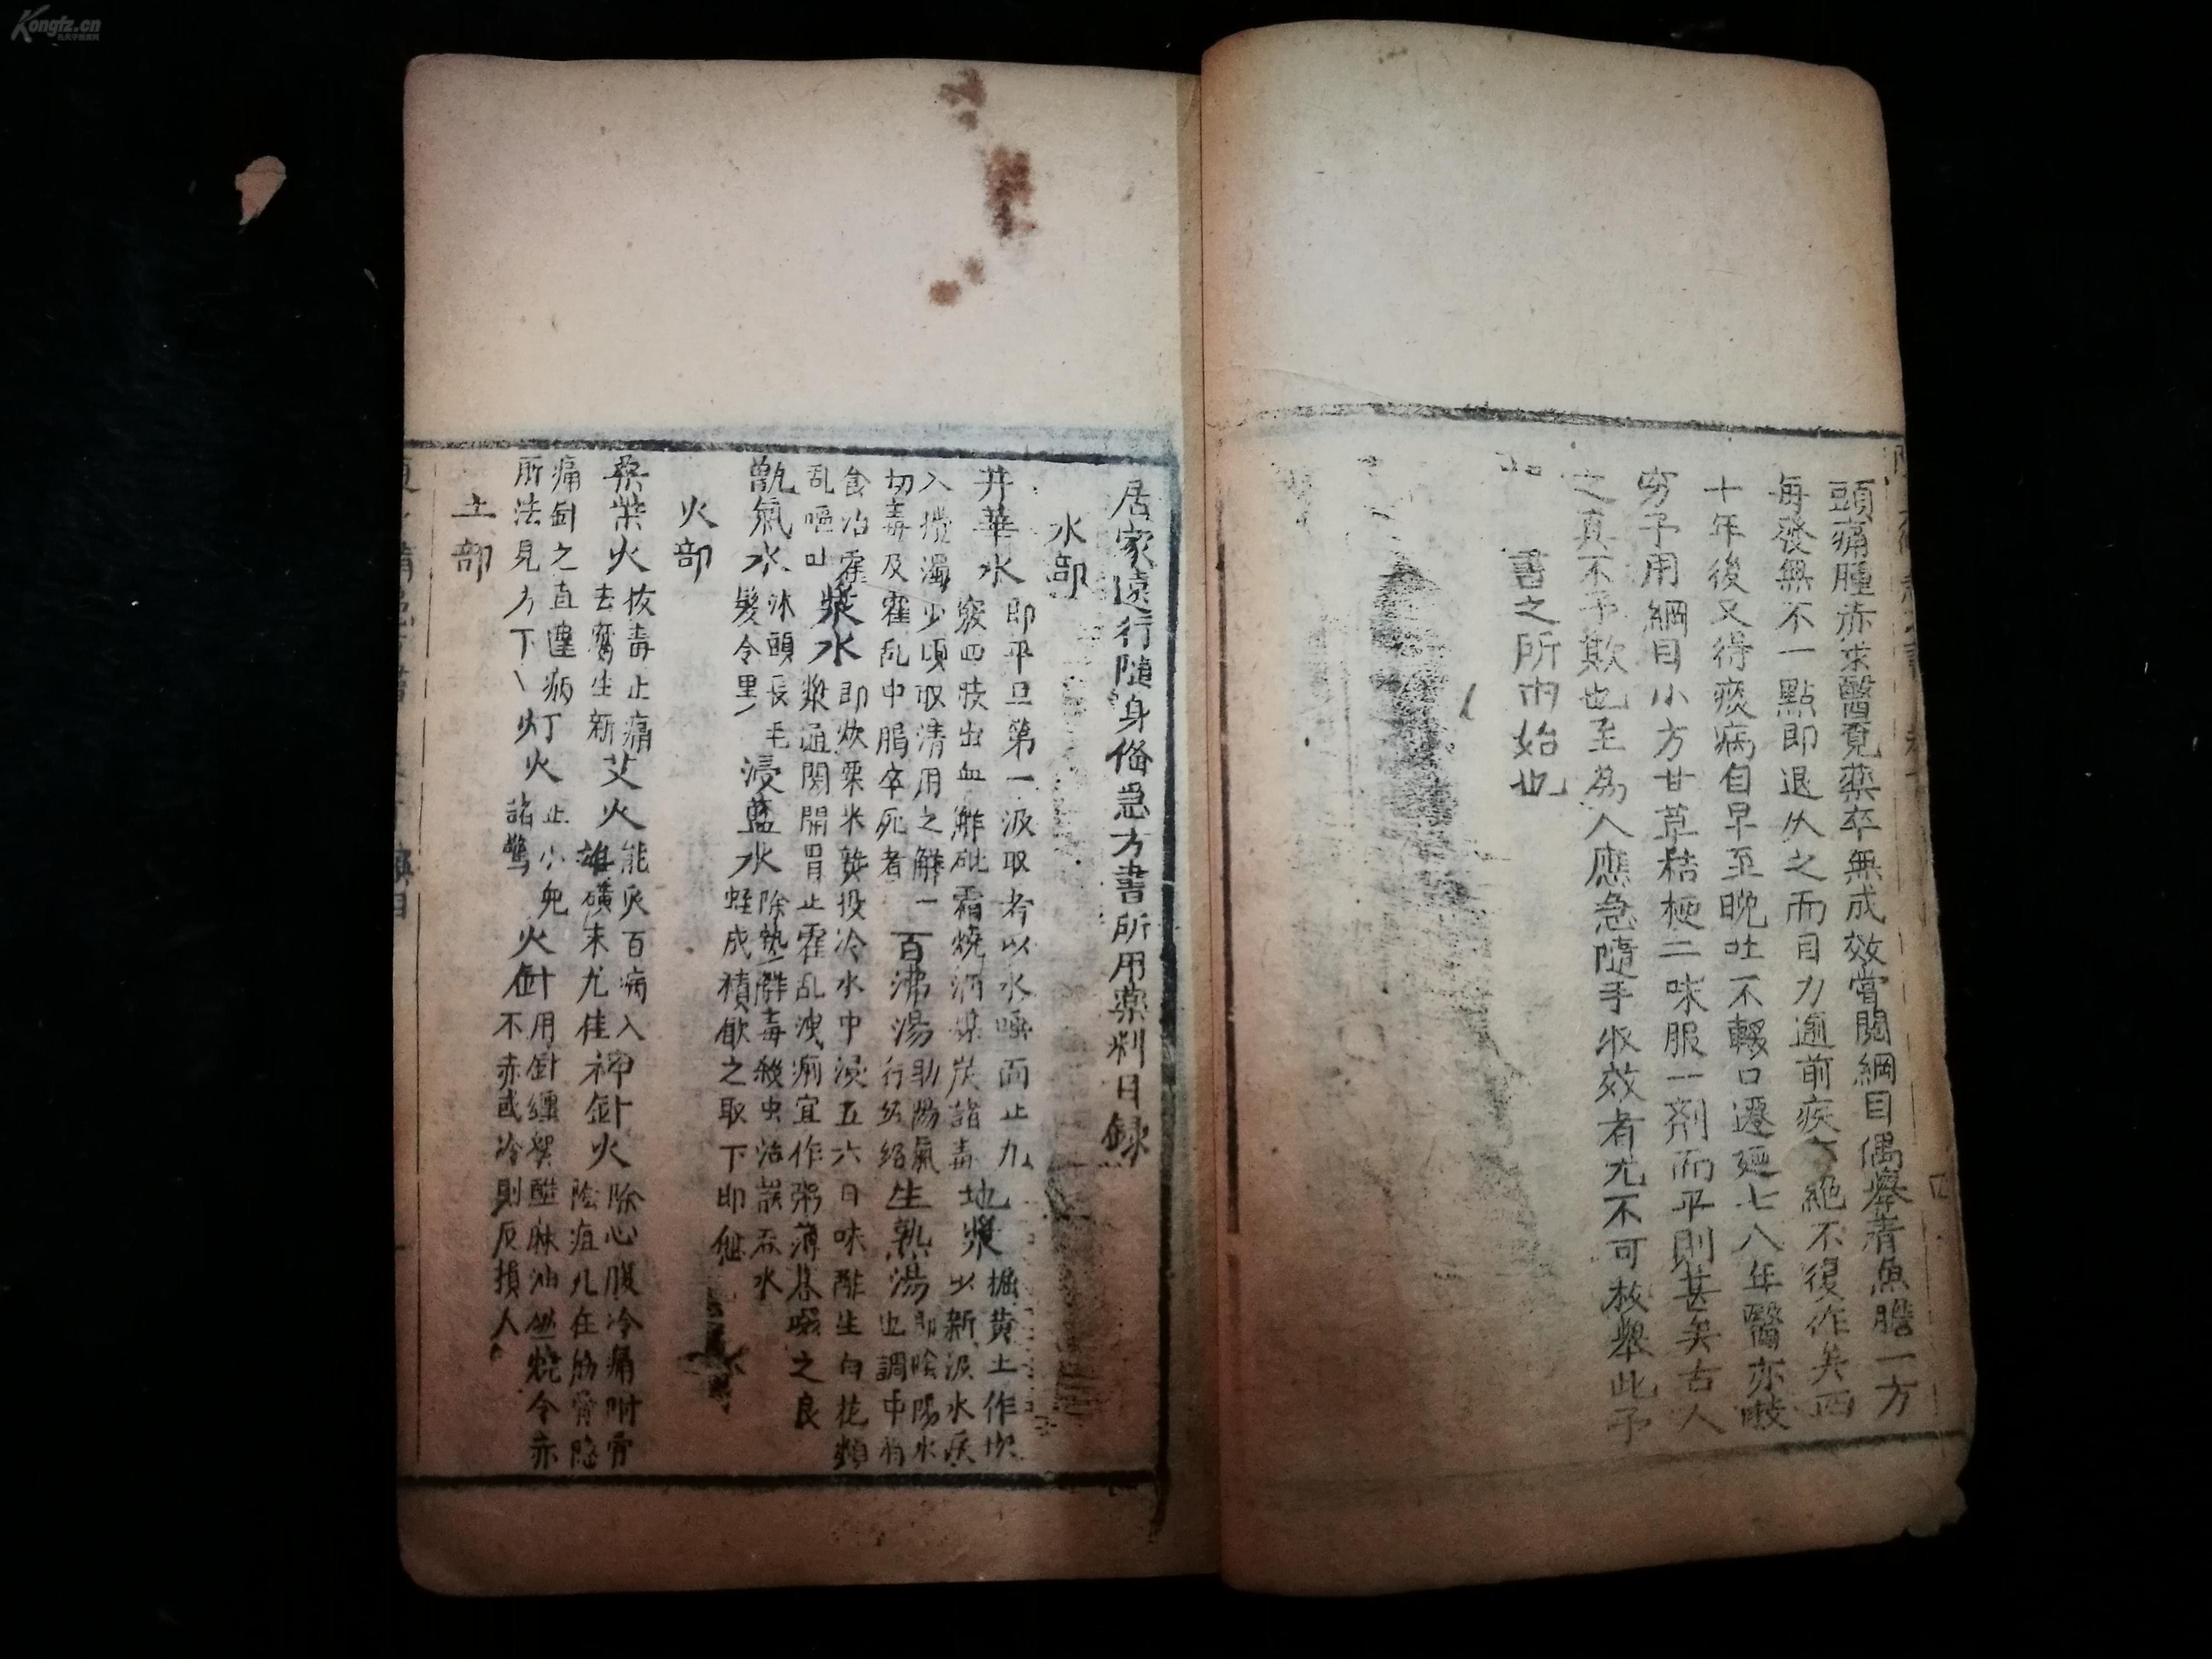 頭痛腫赤求醫覓藥卒無成效嘗閱綱目偶擧青魚膽一方
每發無不一點即退久之而目力逾前疾亦絶不復作矣西
十年後又得痰病自早至晚吐不輟口遷延七八年醫亦嗽
穷予用綱目小方甘草桔梗二味服一剤而平則甚矣古人
之真不予欺也至為人應急隨手收效者尤不可枚舉此予
書之所由始也
居家遠行隨身俻急方書所用藥剤目録
水部
井華水 即平旦第一汲取者以水噀面止九
竅四肢出血 地漿 掘黄土作坎
以新汲水
入攪濁少頃取清用之解一
切毒及霍乱中腸卒死者 觧砒霜燒酒煤炭諸毒
百沸湯 助陽氣
行經絡 生熟湯 即陰陽水
也調中消
食治霍
乱嘔吐 漿水 即炊粟米熱投冷水中浸五六日味酢生白花類
漿通関開胃止霍乱洩痢宜作粥薄暮啜之良
甑氣水 沐頭長毛
髮令黑 浸藍水 除熱觧毒殺虫治誤吞水
蛭成積飲之取下即愈
火部
桑柴火 拔毒止痛
去腐生新 艾火 能灸百病入
雄磺末尤佳 神針火 除心腹冷痛附骨
陰疽凡在筋骨隐
痛針之直達病
所法見方下 灯火 止小兒
諸驚 火針 用針纏綿蘸麻油燒令赤
不赤或冷則反損人
土部
Kongfz.cn